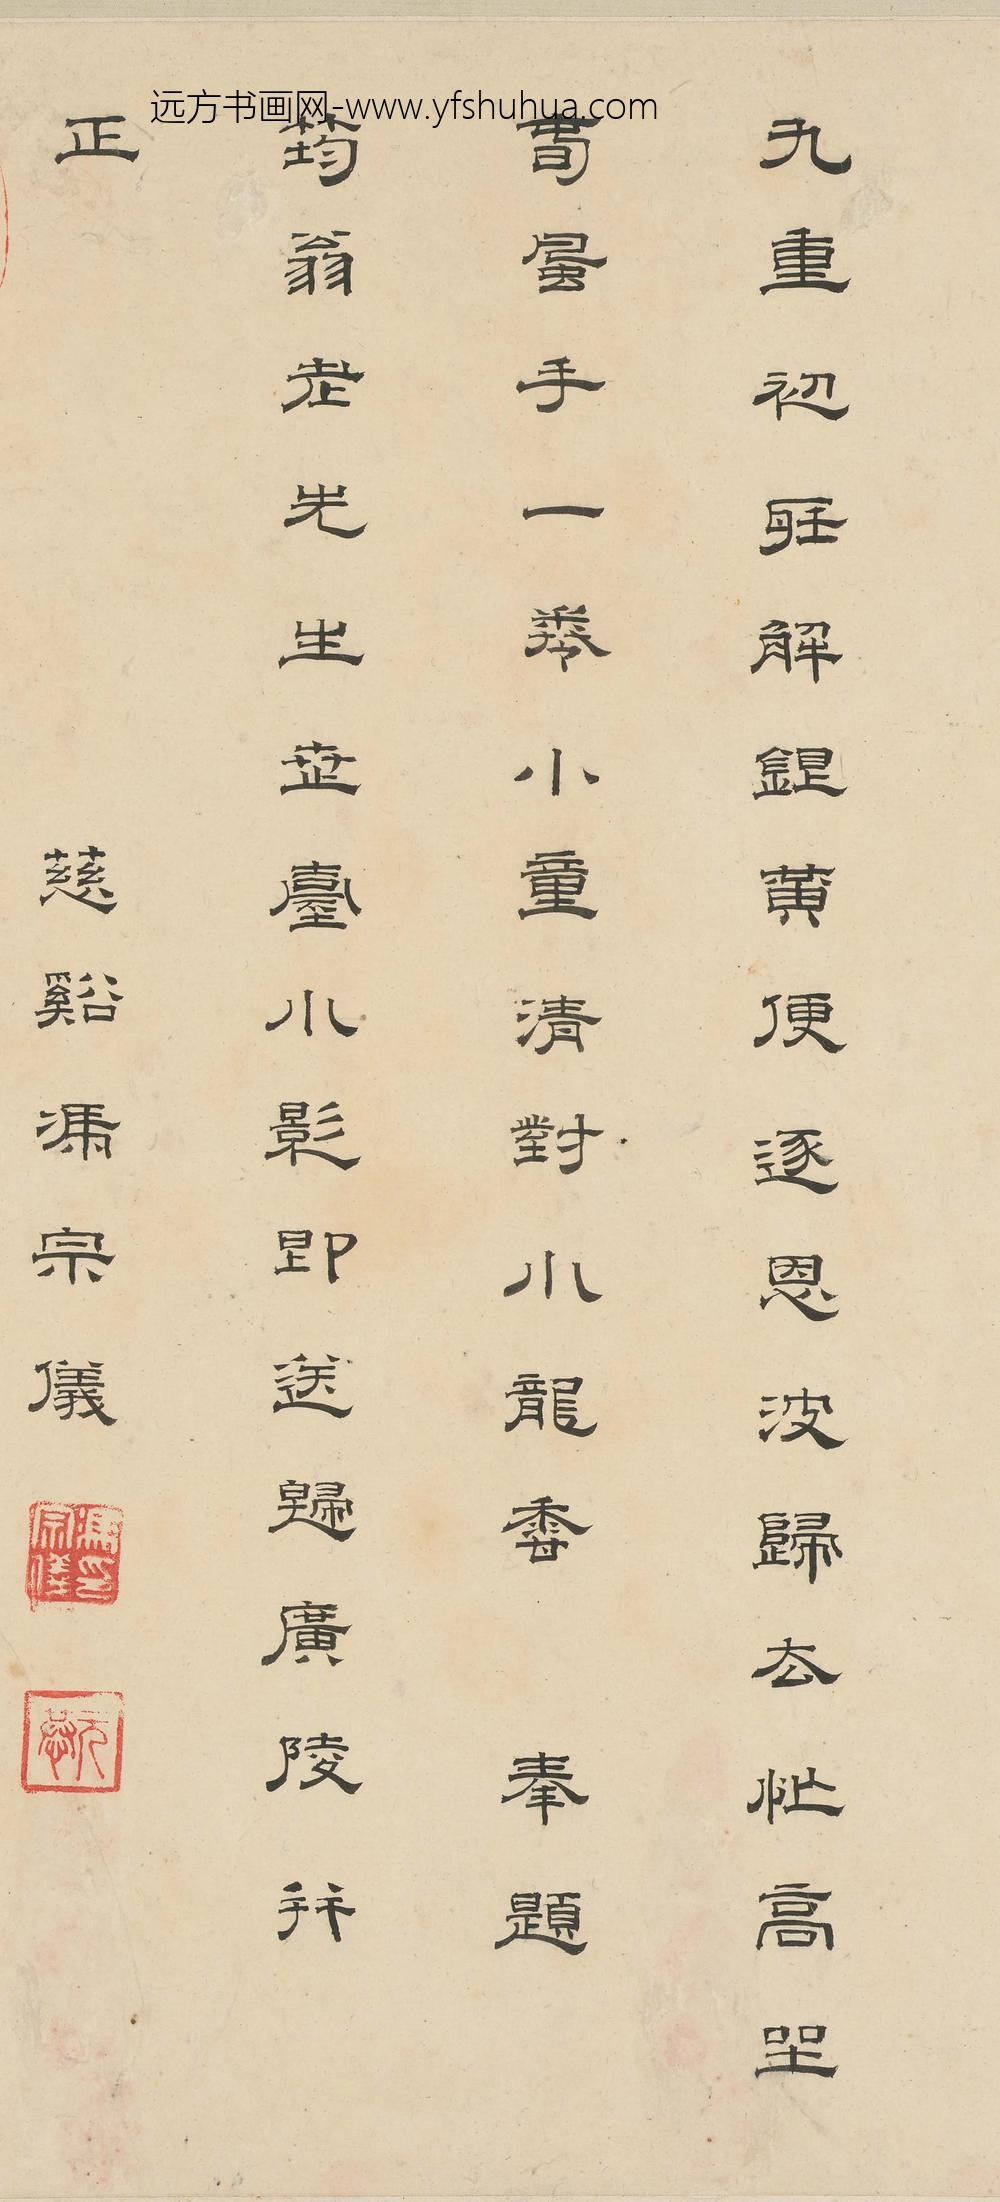 远方书画网-www.yfshuhua.com
九重初聽解銀黃便逐恩波歸去忙高坐
春風手一卷小童清對小龍香 奉題
筠翁老先生芷臺小影即送歸廣陵并
正
慈谿馮宗儀
馮宗儀印